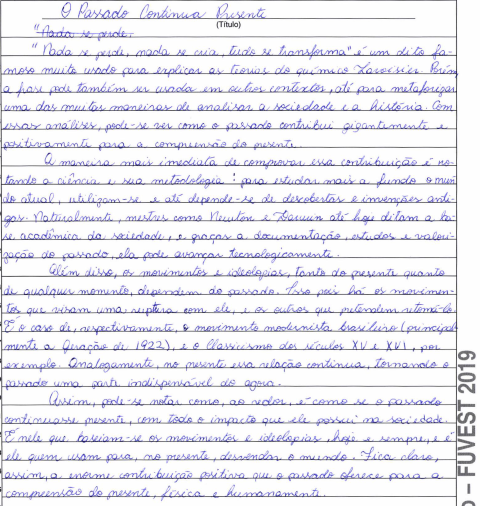 O Passado Continua Presente
(Título)
"Nada se perde,
"Nada se perde, nada se cria, tudo se transforma" é um dito fa-
moso muito usado para explicar as teorias do químico Lavoisier. Porém,
a frase pode também ser usada em outros contextos, até para metaforizar
uma das muitas maneiras de analisar a sociedade e a história. Com
essas análises, pode-se ver como o passado contribui gigantemente e
positivamente para a compreensão do presente.
A maneira mais imediata de comprovar essa contribuição é no-
tando a ciência e sua metodologia: para estudar mais a fundo o mun-
do atual, utilizam-se, e até depende-se de descobertas e invenções anti-
gas. Naturalmente, mestres como Newton e Darwin até hoje ditam a ba-
se acadêmica da sociedade, e graças a documentação, estudos e valori-
zação do passado, ela pode avançar tecnologicamente.
Além disso, os movimentos e ideologias, tanto do presente quanto
de qualquer momento, dependem do passado. Isso pois há os movimen-
tos que visam uma ruptura com ele, e os outros que pretendem retomá-lo.
É o caso de, respectivamente, o movimento modernista brasileiro (principal-
mente a Geração de 1922), e o Classicismo dos séculos XV e XVI, por
exemplo. Analogamente, no presente essa relação continua, tornando o
passado uma parte indispensável do agora.
Assim, pode-se notar como, ao redor, é como se o passado
continuasse presente, com todo o impacto que ele possui na sociedade.
É nele que baseiam-se os movimentos e ideologias, hoje e sempre, e é
ele quem usam para, no presente, desvendar o mundo. Fica claro,
assim, a enorme contribuição positiva que o passado oferece para a
compreensão do presente, física e humanamente.
– FUVEST 2019